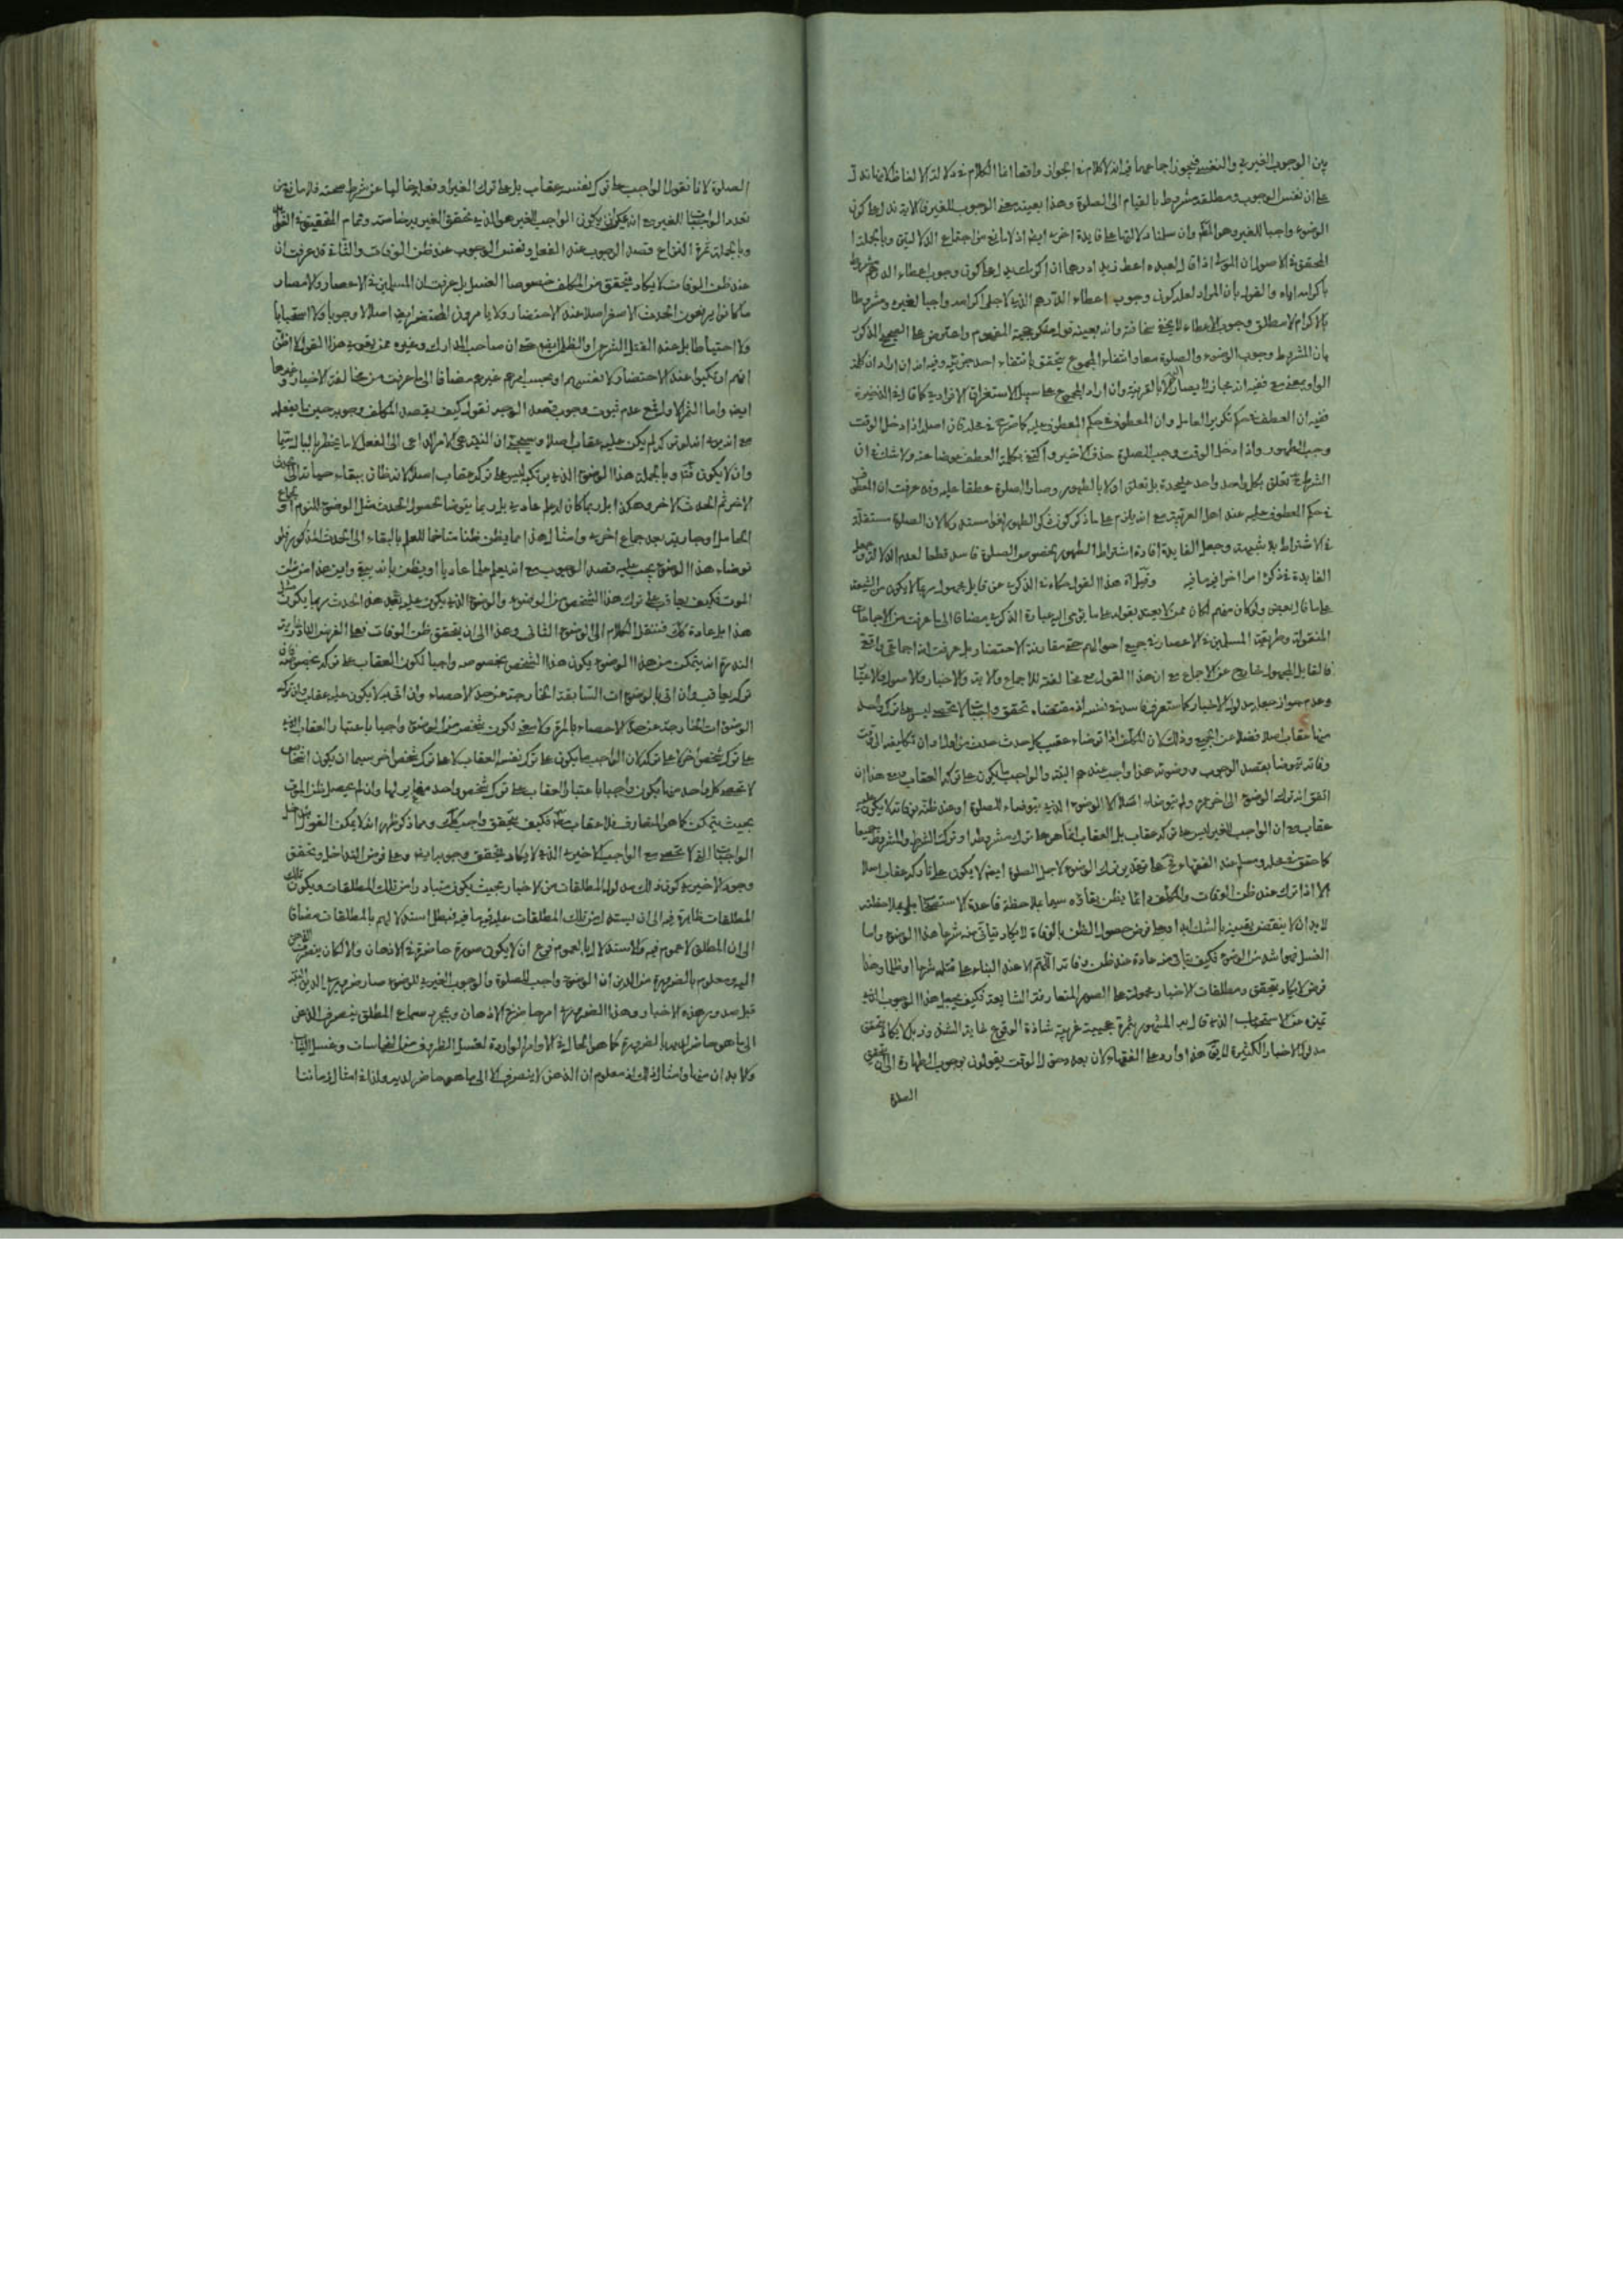 بين الوجوب الغيري والنفسي فيجوز اجماعهما فيه انه لا كلام في الجواز واقعا انما الكلام في دلالة الالفاظ
على ان نفس الوجوب ومطلقه مشروط بالقيام الى الصلوة وهذا بعينه معنى الوجوب للغير فالاية تدل على كون
الوضوء واجبا للغير وهو المط وان سلمنا دلالتها على فايدة اخرى ايضا اذ لا مانع من اجتماع الدلالتين وبالجملة
المحقق في الاصول ان المولى اذا قال لعبده اعط زيدا درهما ان اكرمك يدل على كون وجوب اعطاء الدرهم مشروط
باكرامه اياه والقول بأن المراد لعله كون وجوب اعطاء الدرهم الذي لاجل اكرامه واجبا لغيره ومشروطا
بالاكرام لا مطلق وجوب الاعطاء لا يخفى سخافته وانه بعينه قول منكر حجية المفهوم واعترض على الصحيح المذكور
بان المشروط وجوب الوضوء والصلوة معا وانتفاء المجموع يتحقق بانتفاء احد جزئيه وفيه انه ان اراد ان كلمة
الواو بمعنى مع ففيه انه مجاز لا يصار اليه الا بالقرينة وان اراد المجموع على سبيل الاستغراق الافرادي كما قال في الذخيرة
ففيه ان العطف في حكم تكرير العامل وان المعطوف في حكم المعطوف عليه كما صرح في محله كان اصله اذا دخل الوقت
وجب الطهور واذا دخل الوقت وجب الصلوة حذف الاخير واكتفى بكلمة العطف عوضا عنه ولا شك في ان
الشرط تعلق بكل واحد واحد عليحدة بل تعلق اولا بالطهور وصار الصلوة عطفا عليه وقد عرفت ان المعطوف
في حكم المعطوف عليه عند اهل العربية مع انه يلزم على ما ذكر كون ذكر الطهور لغوا مستدركا لان الصلوة مستقلة
في الاشتراط بلا شبهة وجعل الفايدة افادة اشتراط الطهور بخصوص الصلوة فاسد قطعا لعدم الدلالة
الفايدة في ذكره امرا اخر فيه ما فيه وقيل ان هذا القول حكاه في الذكرى عن قايل مجهول ربما لا يكون من الشيعة
على ما قال بعض ولو كان منهم لكان ممن لا يعتد بقوله على ما يؤمي اليه عبارة الذكرى مضافا الى ما عرفت من الاجماعات
المنقولة وطريقة المسلمين في الاعصار في جميع احوالهم حتى مقارنة الاحتضار وبل عرفت انه اجماعي واقعي
فالقايل المجهول خارج عن الاجماع مع ان هذا القول مع مخالفته للاجماع والاية والاخبار والاصول والاعتبار
وعدم جواز جعله مدلول الاخبار كما ستعرف فاسد في نفسه اذ مقتضاه تحقق واجبات لا تحصى ليس على ترك واحد
منها عقاب اصلا فضلا عن الجميع وذلك لان المكلف اذا توضاء عقيب كل حدث حدث من اول اوان تكليفه الى وقت
وفاته متوضأ بقصد الوجوب ووضوئه هذا واجب عندهم البتة والواجب ما يكون على تركه العقاب مع هذا ان
اتفق انه ترك الوضوء الى اخر عمره ولم يتوضاء اصلا الا الوضوء الذي يتوضاء للصلوة او عند ظنه بوفاته لا يكون عليه
عقاب مع ان الواجب الغيري ليس على تركه عقاب بل العقاب انما هو على ترك مشروطه او ترك الشرط والمشروط جميعا
كما حقق في محله ومسلم عند الفقهاء فعلى هذا تقدير ترك الوضوء لاجل الصلوة ايضا لا يكون على تركه عقاب اصلا
الا اذا ترك عند ظن الوفات والمكلف دائما يظن بقائه سيما بملاحظة قاعدة الاستصحاب بل بملاحظته
لا بد ان لا ينقض يقينه بالشك ابدا وعلى فرض حصول الظن بالوفاة لا يكاد يتأتى منه شرعا هذا الوضوء واما
الغسل فهو اشد من الوضوء فكيف يتأتى منه عادة عند ظن وفاته اللهم الا عند البناء على قتله شرعا او ظلما وهذا
فرض لا يكاد يتحقق ومطلقات الاخبار محمولة على الصور المتعارفة الشايعة فكيف يجعل هذا الوجوب الذي
مدلول الاخبار الكثيرة لا يق هذا وارد على الفقهاء لان بعد دخول الوقت يقولون بوجوب الطهارة الى ان يتحقق
الصلوة
الصلوة لانا نقول الواجب على تركه نفسه عقاب بل على ترك الغير او فعله خاليا عن شرط صحته فلا مانع من
تعدد الواجبات للغير مع انه يمكن ان يكون الواجب للغير هو الذي يتحقق الغير برضا منه وتمام التحقيق في
وبالجملة ثمرة النزاع قصد الوجوب عند الفعل ونفس الوجوب عند ظن الوفات والثانية قد عرفت ان
عند ظن الوفات لا يكاد يتحقق من المكلف خصوصا الغسل بل عرفت ان المسلمين في الاعصار والامصار
ما كانوا يرفعون الحدث الاصغر اصلا عند الاحتضار ولا يامرون المحتضر ايضا اصلا لا وجوبا ولا استحبابا
ولا احتياطا بل عند القتل الشرعي او الظلم ايضا حتى ان صاحب المدارك وغيره ممن يقوي هذا القول لا اظن
انهم ارتكبوا عند الاحتضار لانفسهم او بحسب امرهم غيرهم مضافا الى ما عرفت من مخالفة الاخبار وغيرها
ايضا واما الثمرة الاولى فمع عدم ثبوت وجوب قصد الوجه نقول كيف يقصد المكلف وجوبه حين ما يفعله
مع انه يرى انه لو تركه لم يكن عليه عقاب اصلا وسيجئ ان النية هي الامر الداعي الى الفعل لا ما يخطر بالبال سيما
وان لا يكون وبالجملة هذا الوضوء الذي يرتكبه ليس على تركه عقاب اصلا لانه ظان ببقاء حياته الى
الاخر ثم الحدث الاخر وهكذا بل ربما كان له علم عادي بل ربما يتوضأ لحصول الحدث مثل الوضوء للنوم او جماع
الحامل او جارية بعد جماع اخرى وامثال هذا مما يظن ظنا متاخما للعلم بالبقاء الى الحدث المذكور فلو
توضاء هذا الوضوء يجب عليه قصد الوجوب مع انه يعلم علما عاديا او يظن بانه يبقى واين هذا من ظن
الموت فكيف يعاقب على ترك هذا الشخص من الوضوء والوضوء الذي يكون عليه بعد هذا الحدث ربما يكون مثل
هذا بل عادة كك فننقل الكلام الى الوضوء الثاني وهذا الى ان يتحقق ظن الوفات فعلى الفرض النادر غاية
الندرة انه يتمكن من هذا الوضوء يكون هذا الشخص بخصوصه واجبا لكون العقاب على تركه بخصوصه فان
تركه يعاقب وان اتى بالوضوءات السابقة الخارجة عن حد الاحصاء وان اتى به لا يكون عليه عقاب وان ترك
الوضوءات الخارجة عن حد الاحصاء بالمرة ولا معنى لكون شخص من الوضوء واجبا باعتبار العقاب الذي
على ترك شخص اخر لا على تركه لان الواجب ما يكون على ترك نفسه العقاب لا على ترك شخص اخر سيما ان يكون اشخاص
لا تحصى كل واحد منها يكون واجبا باعتبار العقاب على ترك شخص واحد مغاير لها وان لم يحصل ظن الموت
بحيث يتمكن كما هو المتعارف فلا عقاب اصلا فكيف يتحقق واجب كك ومما ذكر ظهر انه لا يمكن القول بتداخل
الواجبات التي لا تحصى مع الواجب الاخير الذي لا يكاد يتحقق وجوبه ايضا وعلى فرض التداخل وتحقق
وجوب الاخير كون ذلك مدلول المطلقات من الاخبار بحيث يكون متبادرا من تلك المطلقات ويكون تلك
المطلقات ظاهرة فيه الى ان يستدل من تلك المطلقات عليه فيه ما فيه فبطل استدلالهم بالمطلقات مضافا
الى ان المطلق لا عموم فيه والاستدلال بالعموم فرع ان لا يكون صورة حاضرة في الاذهان والا لكان ينصرف الذهن
اليه ومعلوم بالضرورة من الدين ان الوضوء واجب للصلوة والوجوب الغيري للوضوء صار ضروري الدين
قبل صدور هذه الاخبار وهذا الضروري امر حاضر في الاذهان وبمجرد سماع المطلق ينصرف الذهن
الى ما هو حاضر لديه بالضرورة كما هو الحال في الاوامر الواردة لغسل الظروف من النجاسات وغسل الثياب
والابدان منها وامثال ذلك اذ معلوم ان الذهن لا ينصرف الا الى ما هو حاضر لديه ولذا في امثال زماننا